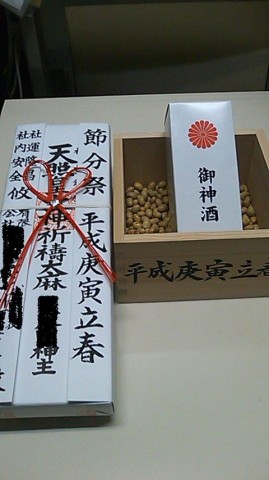 節分祭
平成庚寅立春
天照皇
神祈禱大麻
神主
社運隆昌
社内安全
攸
御神酒
平成庚寅立春